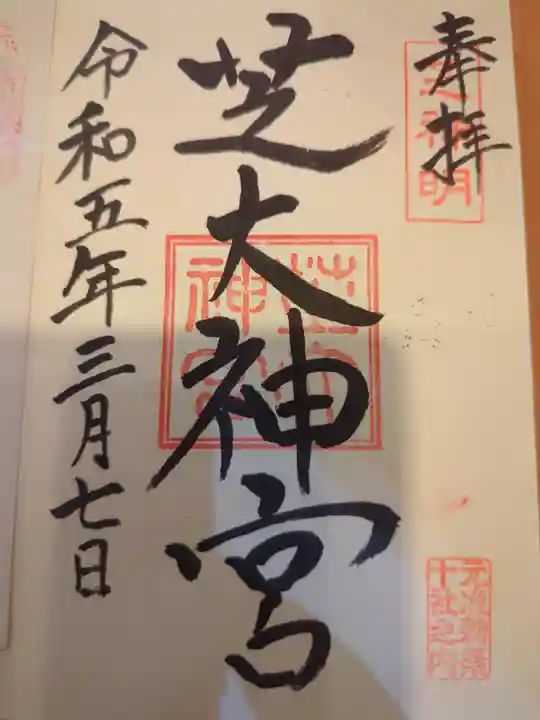 奉拝
芝神明
芝大神宮
芝大神宮
元准勅祭
十社之内
令和五年三月七日